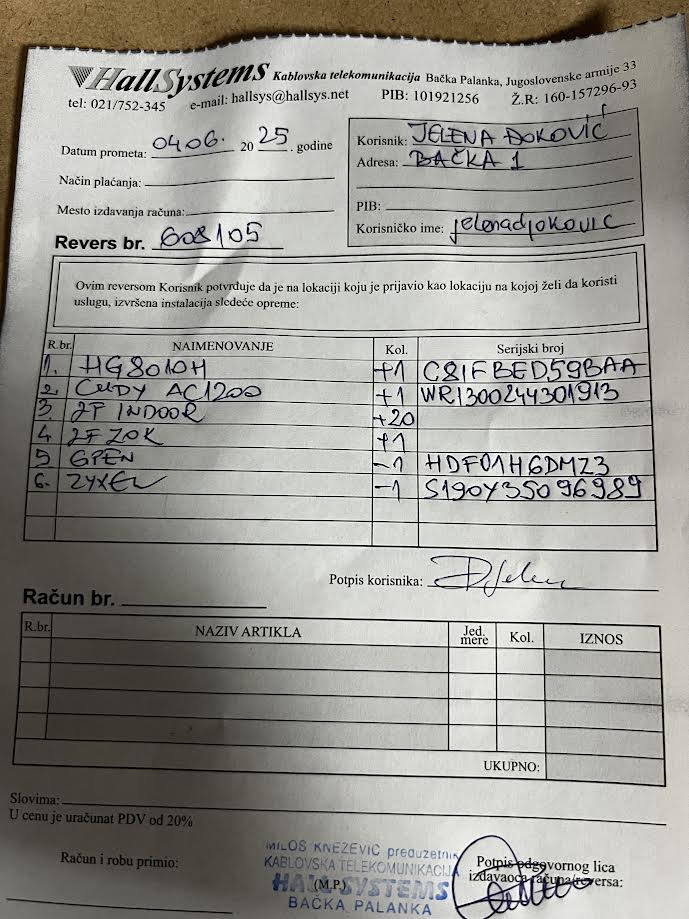 HallSystems Kablovska telekomunikacija Bačka Palanka, Jugoslovenske armije 33
tel: 021/752-345 e-mail: hallsys@hallsys.net PIB: 101921256 Ž.R: 160-157296-93
Datum prometa: 04.06. 20 25. godine
Način plaćanja:
Mesto izdavanja računa:
Revers br. 608105
Korisnik: JELENA ĐOKOVIĆ
Adresa: BAČKA 1
PIB:
Korisničko ime: jelenadjokovic
Ovim reversom Korisnik potvrđuje da je na lokaciji koju je prijavio kao lokaciju na kojoj želi da koristi
uslugu, izvršena instalacija sledeće opreme:
R.br. NAIMENOVANJE Kol. Serijski broj
1. HG8010H +1 C81FBED59BAA
2. CUDY AC1200 +1 WR1300244301913
3 2F INDOOR +20
4 2F ZOK +1
5 GPEN -1 HDF01H6DMZ3
6. ZYXEL -1 S190Y35096989
Potpis korisnika:
Račun br.
R.br. NAZIV ARTIKLA Jed. mere Kol. IZNOS
UKUPNO:
Slovima:
U cenu je uračunat PDV od 20%
Račun i robu primio:
MILOŠ KNEŽEVIĆ preduzetnik
KABLOVSKA TELEKOMUNIKACIJA
HALL SYSTEMS
(M.P.)
BAČKA PALANKA
Potpis odgovornog lica
izdavaoca računa/reversa: